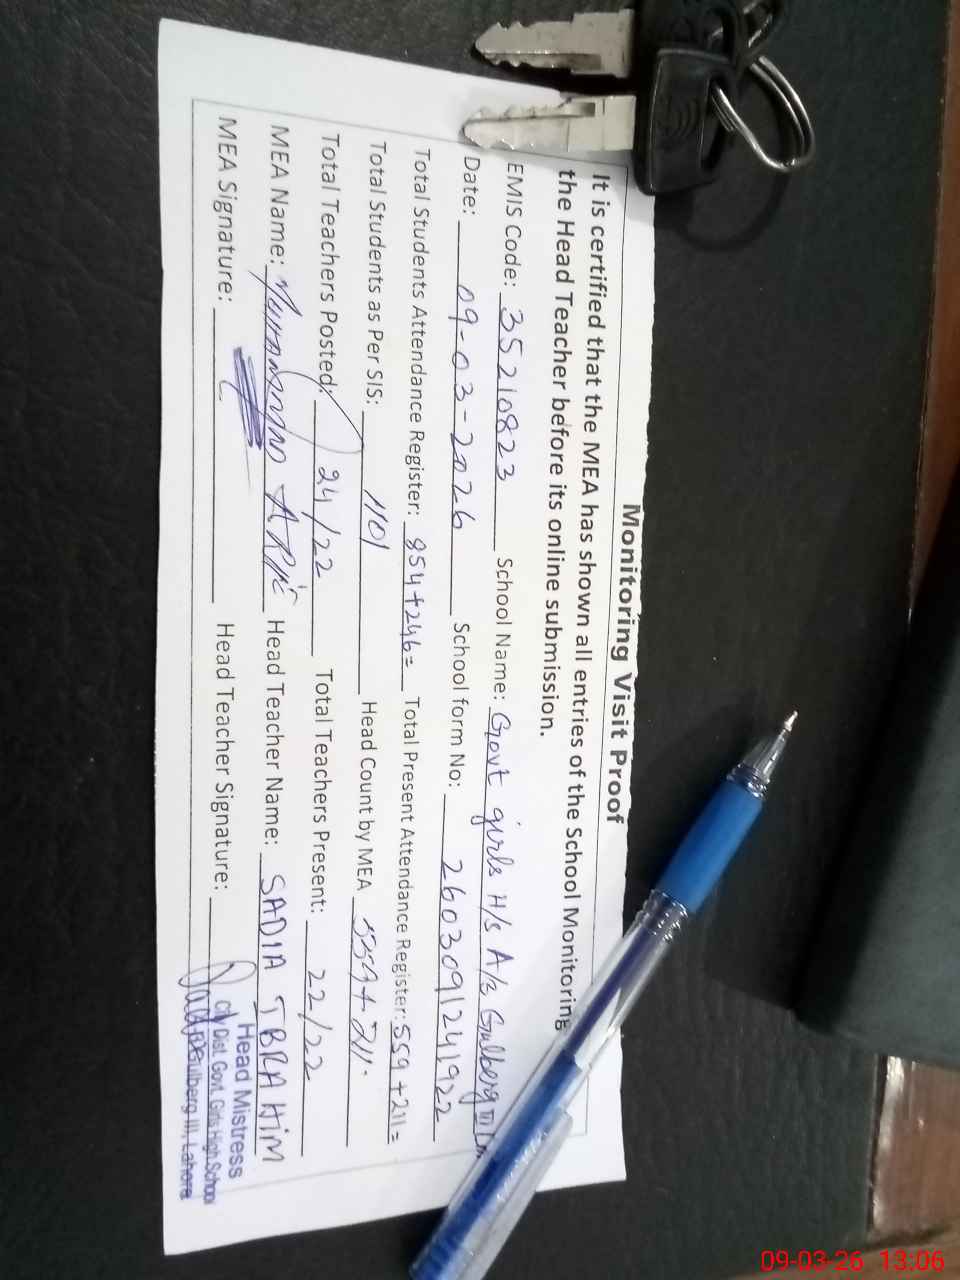 Monitoring Visit Proof
It is certified that the MEA has shown all entries of the School Monitoring
the Head Teacher before its online submission.
EMIS Code: 35210823 School Name: Govt girls H/s A/s Gulberg III
Date: 09-03-2026 School form No: 2603091241922
Total Students Attendance Register: 854+246= Total Present Attendance Register: 559+211=
Total Students as Per SIS: 1101 Head Count by MEA 559+211.
Total Teachers Posted: 24/22 Total Teachers Present: 22/22
MEA Name: Head Teacher Name: SADIA IBRAHIM
MEA Signature: Head Teacher Signature:
Head Mistress
City Dist. Govt. Girls High School
Gulberg III, Lahore
09-03-26 13:06